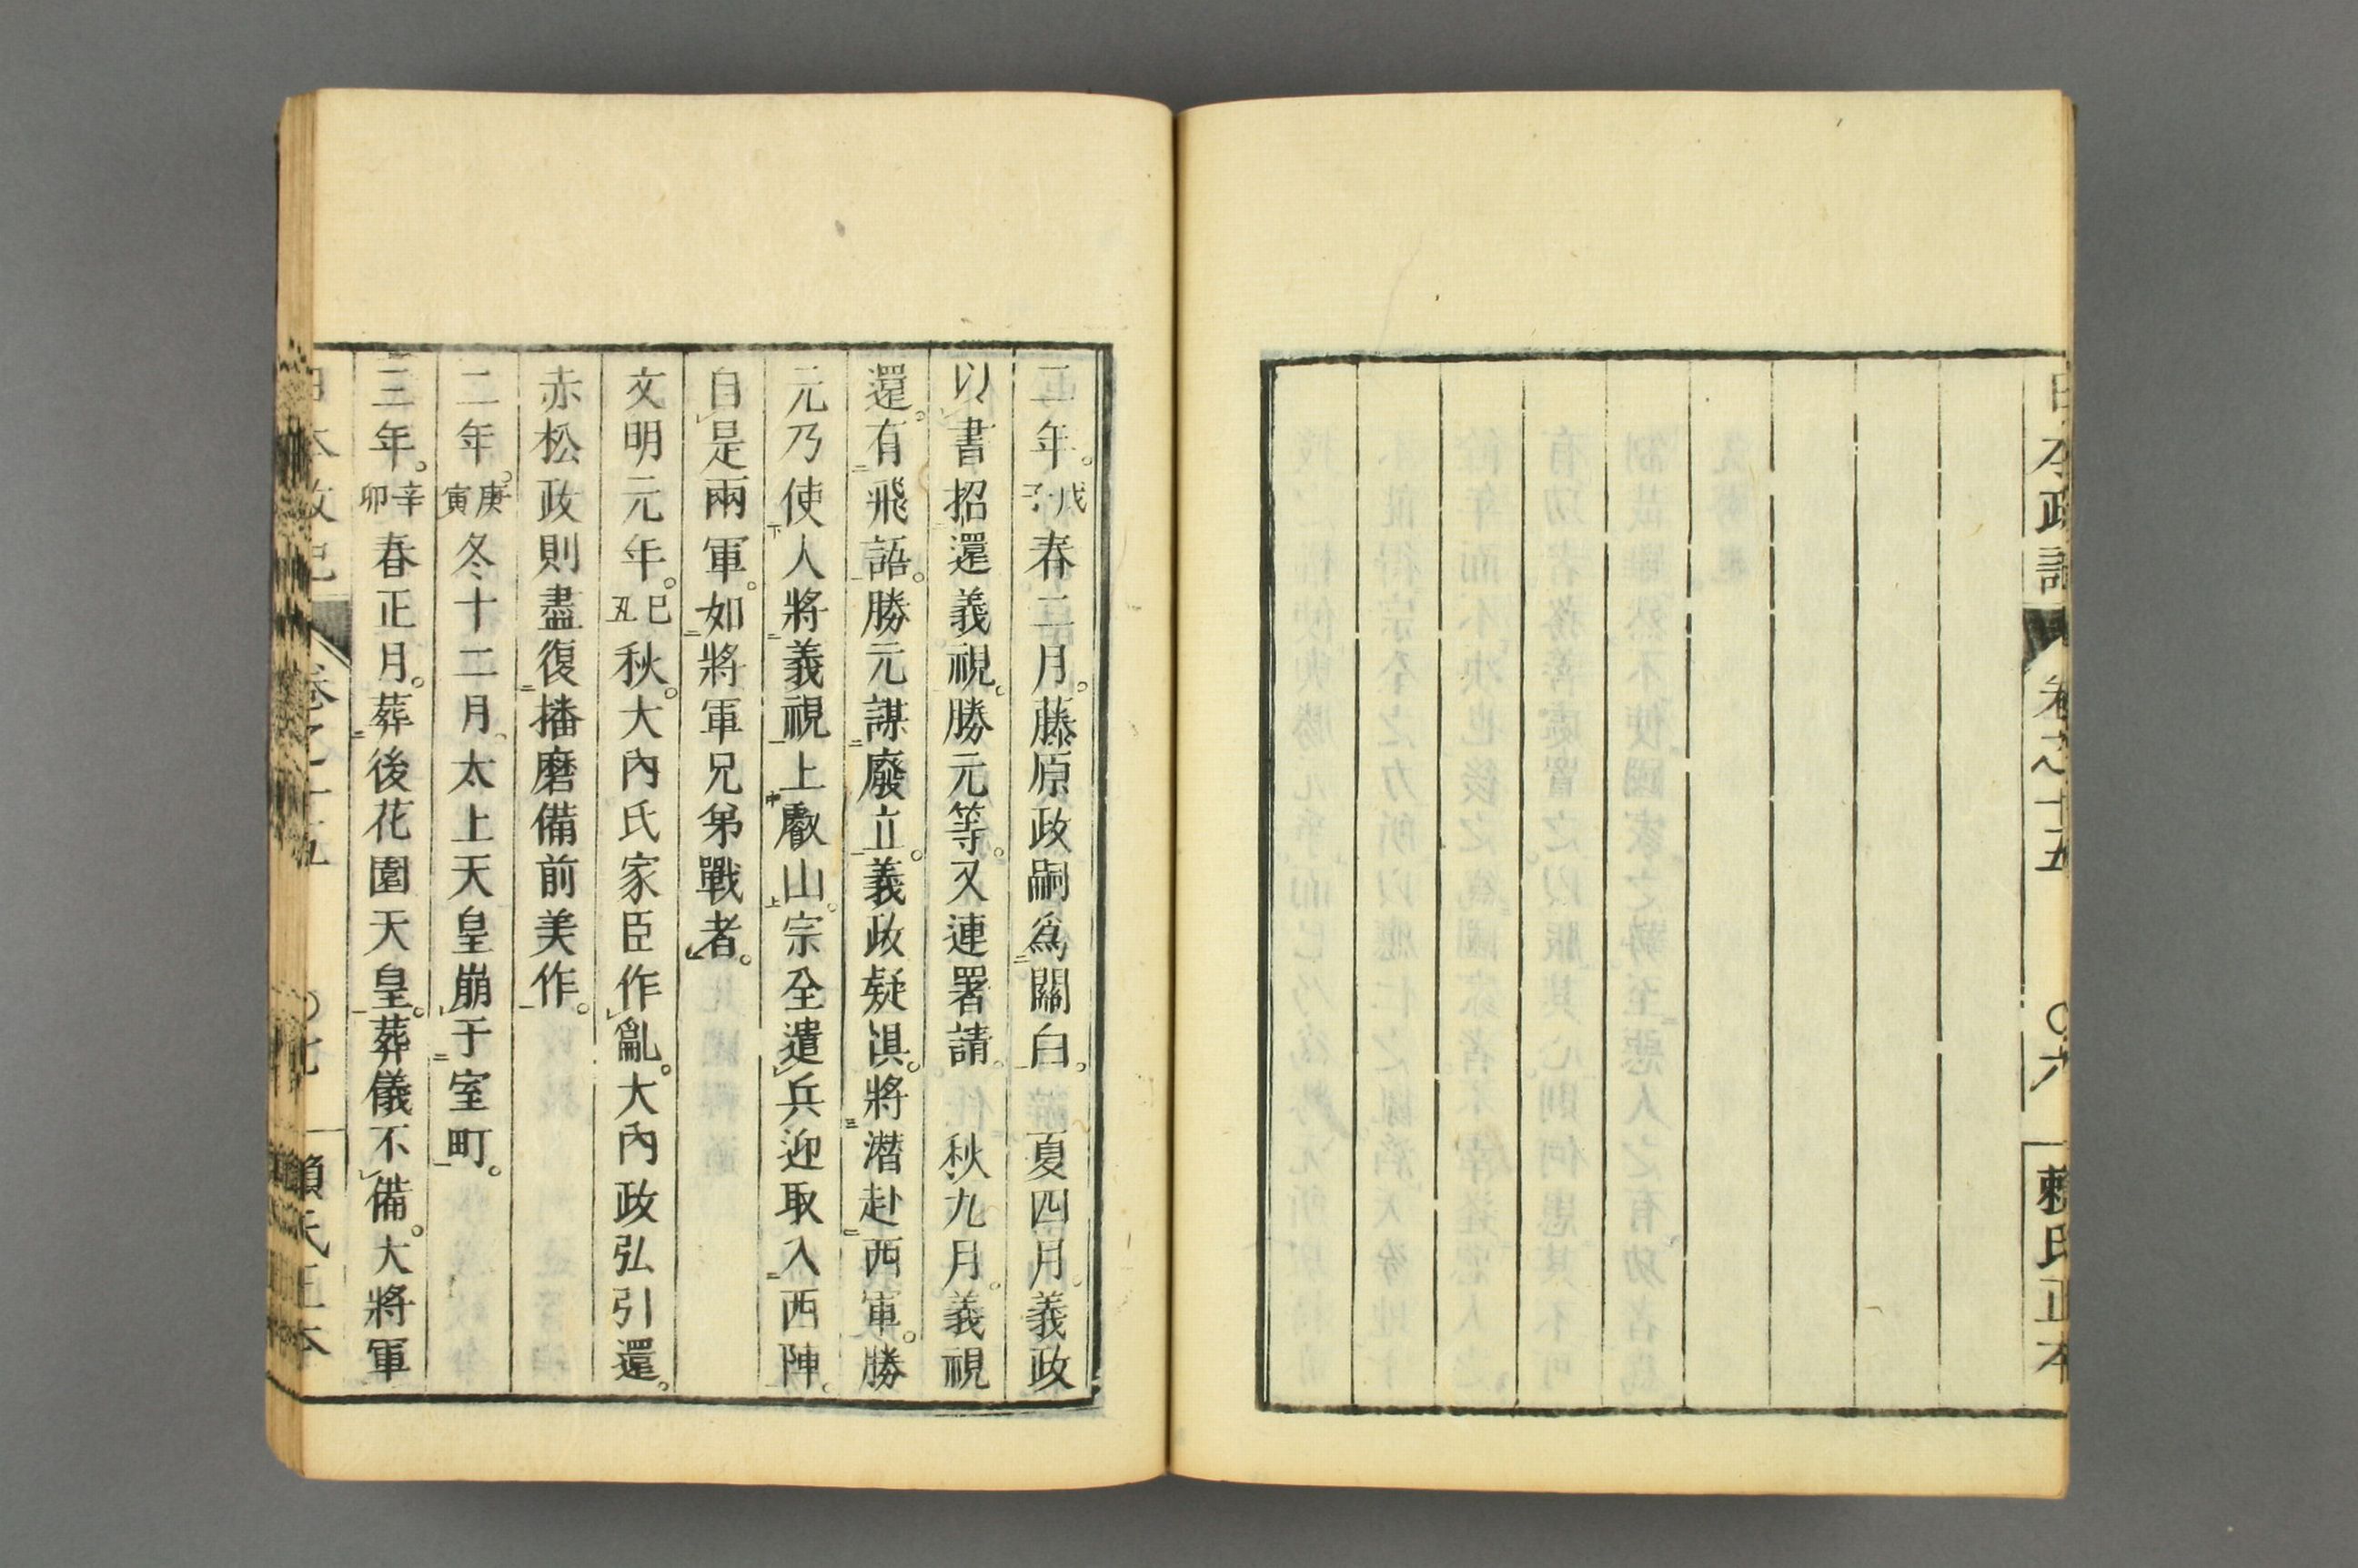 日本政記 卷之十五 〇六 賴氏正本
二年。戊子春二月。藤原政嗣爲關白。夏四月。義政
以書招還義視。勝元等。又連署請。秋九月。義視
還。有飛語。勝元謀廢立。義政疑懼。將潛赴西軍。勝
元乃使人將義視上叡山。宗全遣兵迎取入西陣。
自是兩軍。如將軍兄弟戰者。
文明元年。己丑秋。大內氏家臣作亂。大內政弘引還。
赤松政則盡復播磨備前美作。
二年。庚寅冬十二月。太上天皇崩于室町。
三年。辛卯春正月。葬後花園天皇。葬儀不備。大將軍
日本政記 卷之十五 〇七 賴氏正本